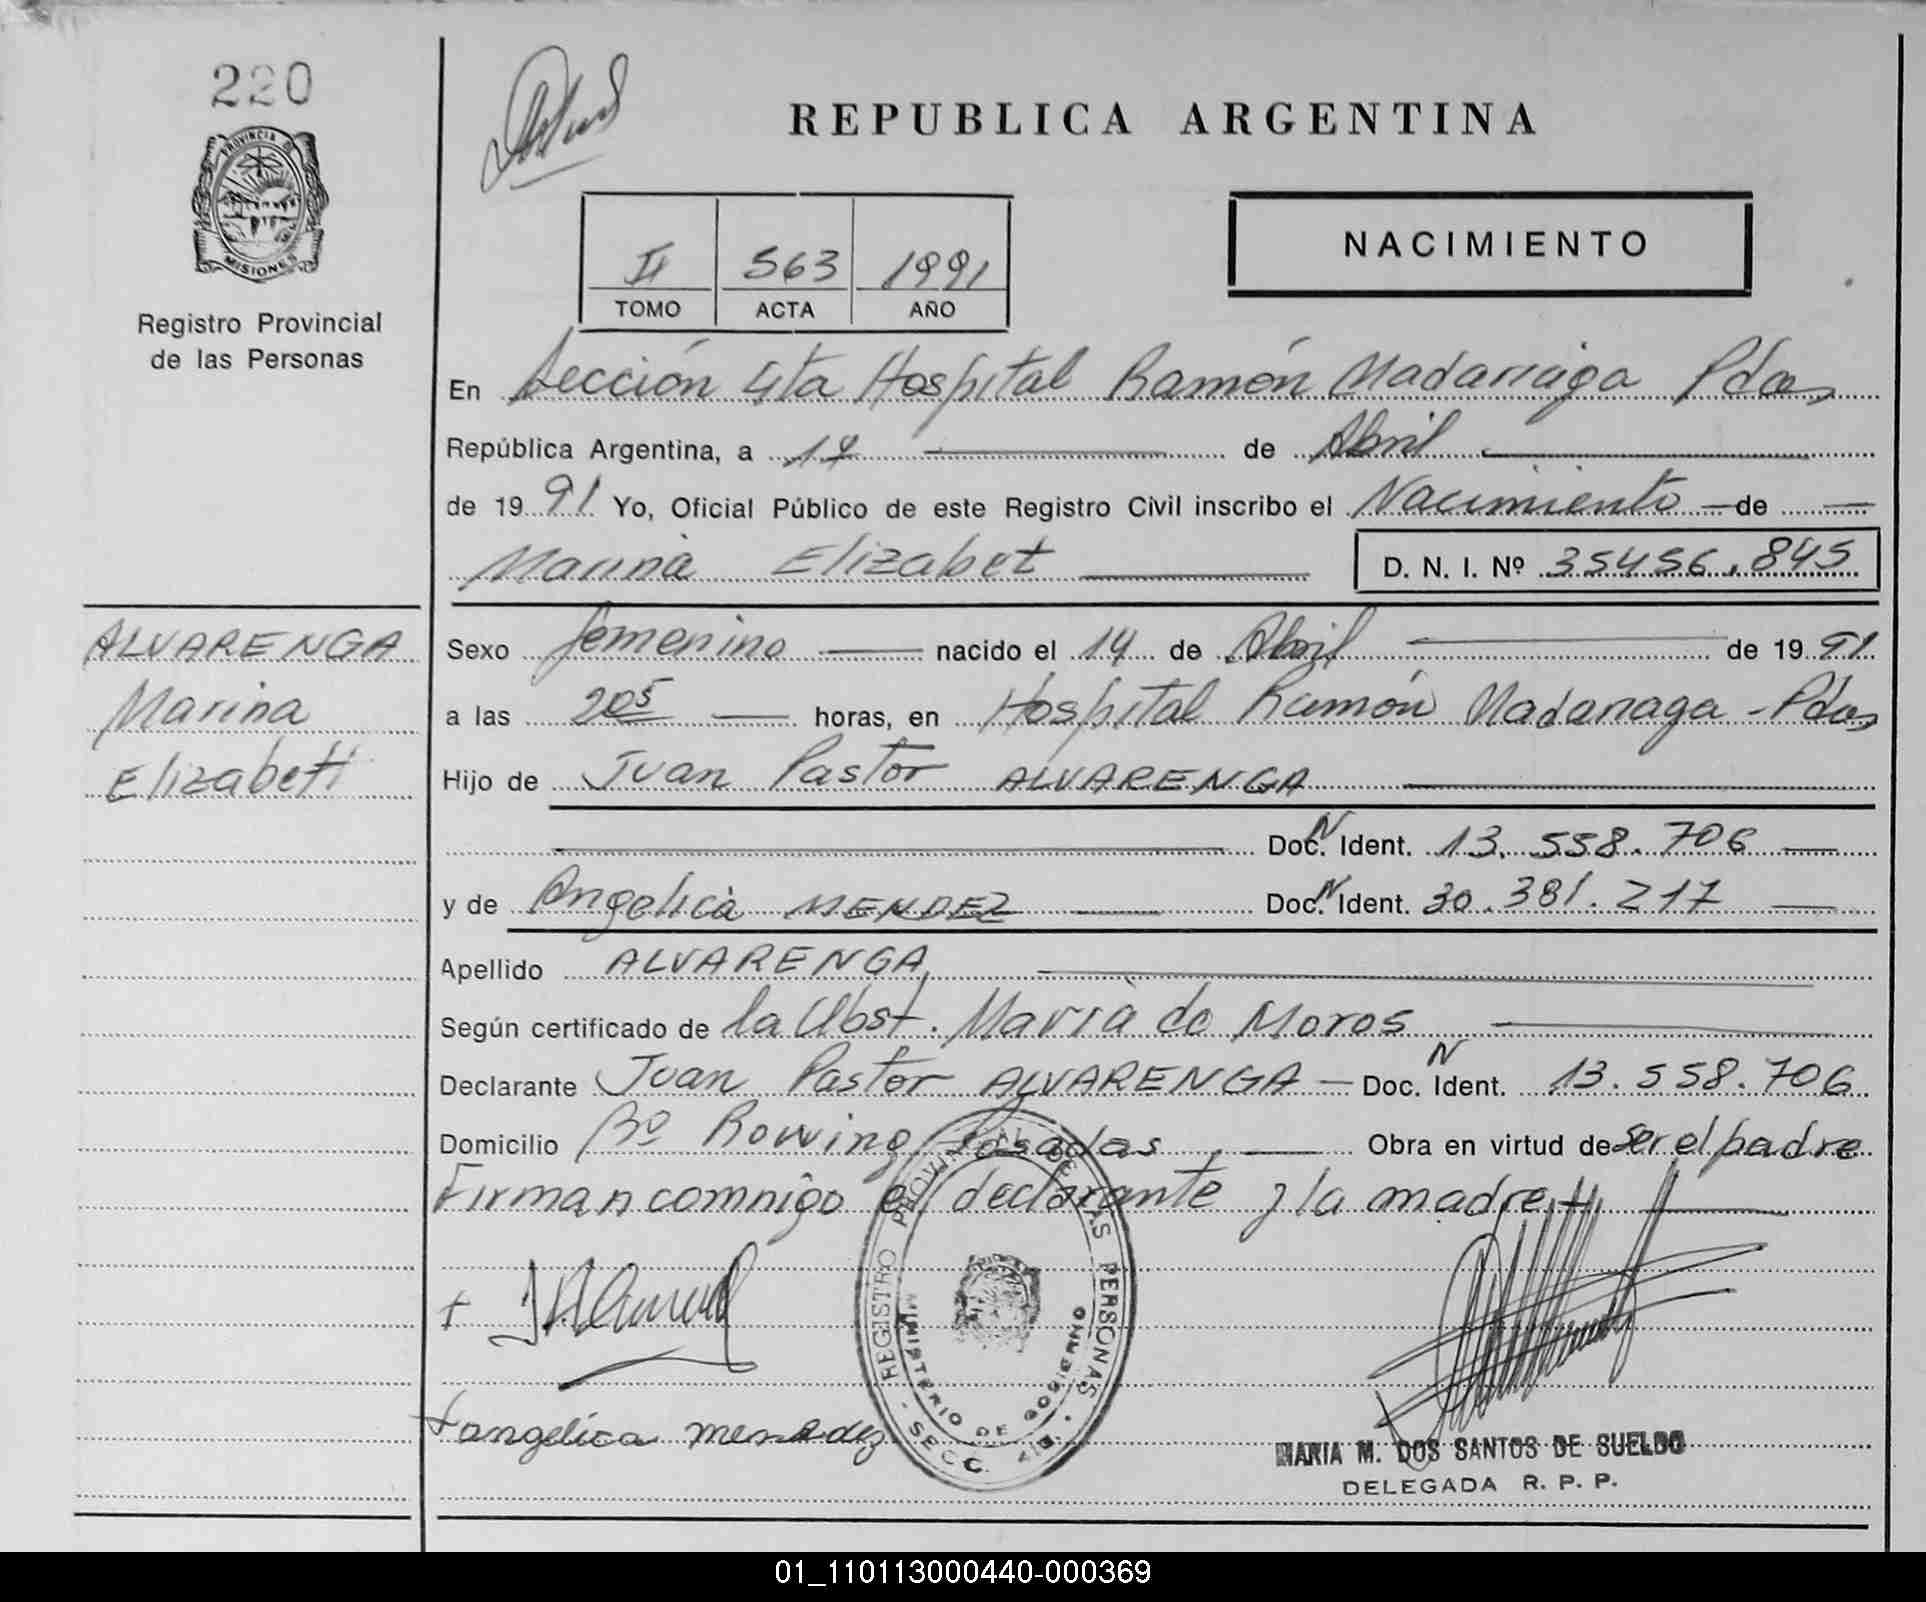 220
PROVINCIA DE
MISIONES
Registro Provincial
de las Personas
REPUBLICA ARGENTINA
NACIMIENTO
II 563 1991
TOMO ACTA AÑO
En Sección 4ta Hospital Ramón Madariaga Pdas,
República Argentina, a 17 de Abril
de 1991 Yo, Oficial Público de este Registro Civil inscribo el Nacimiento de
Marina Elizabet D. N. I. Nº 35456.845
ALVARENGA
Marina
Elizabett
Sexo femenino nacido el 14 de Abril de 1991
a las 20 05 horas, en Hospital Ramón Madariaga - Pdas,
Hijo de Juan Pastor ALVARENGA
Doc. N Ident. 13.558.706
y de Angelica MENDEZ Doc. N Ident. 30.381.217
Apellido ALVARENGA,
Según certificado de la Obst. María de Moros
Declarante Juan Pastor ALVARENGA — Doc. N Ident. 13.558.706
Domicilio Bº Rowing Posadas, Obra en virtud de ser el padre
Firman comnigo el declarante y la madre
REGISTRO PROVINCIAL DE LAS PERSONAS
MINISTERIO DE GOBIERNO
SECC. 4ta.
angelica mendez
MARIA M. DOS SANTOS DE SUELDO
DELEGADA R. P. P.
01_110113000440-000369